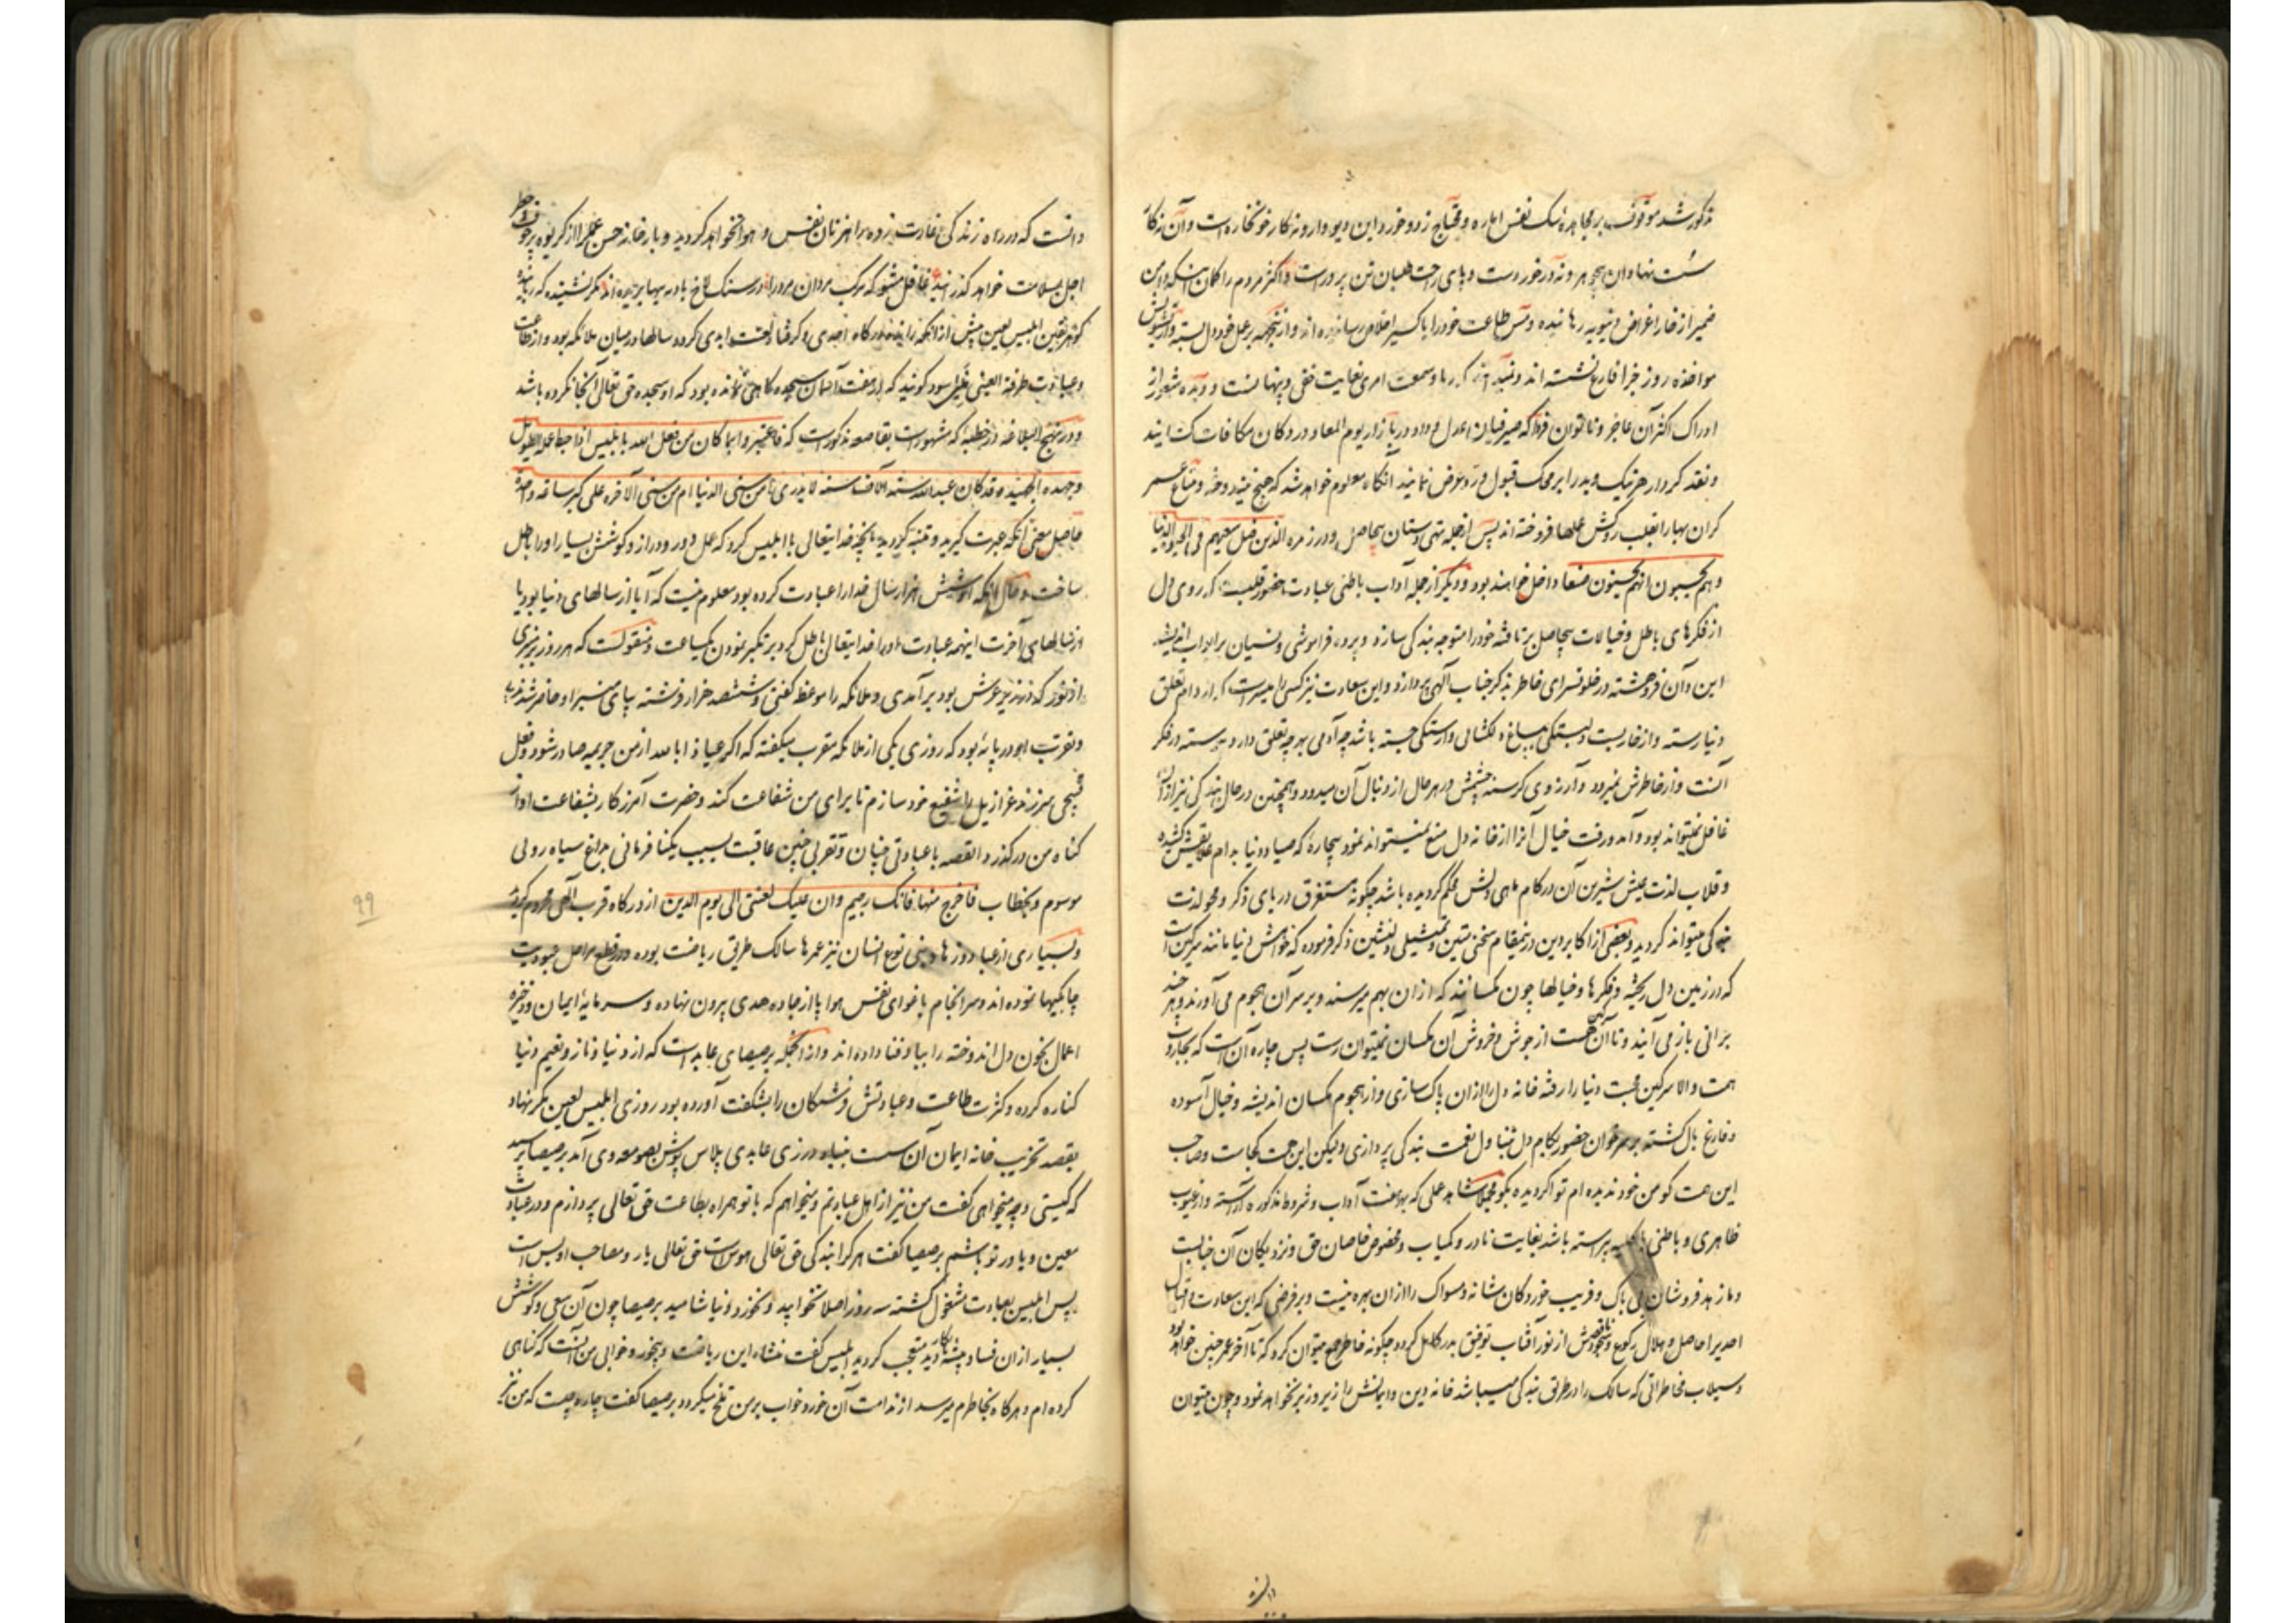 مذکور شد موقوف بر مجاهدهٔ سک نفس اماره و محتاج زد و خورد این دیو وارونه کار خونخاره است و آن نه کار
سست نهادان بیجوهر و نه در خور دست و پای راحت طلبان تن پرورست و اکثر مردم را کمان اینکه دامن
ضمیر از خار اغراض دنیویه رهانیده و مس طاعت خود را باکسیر اخلاص رسانیده اند و از نتیجه بر عمل خود دل بسته و از تشویش
مواخذه روز جزا فارغ نشسته اند و ندانند که ریا و سمعت امری بغایت خفی و پنهانست و دیده شعور از
ادراک اکثر آن عاجز و ناتوان فردا که صیرفیان عدل و داد در بازار یوم المعاد در دکان مکافات کشایند
و نقد کردار هر نیک و بد را بر محک قبول و رد عرض نمایند آنکاه معلوم خواهد شد که هیچ نیندوخته و متاع عمر
کران بها را بقلب روکش عملها فروخته اند پس از جمله تهی دستان بیحاصل و در زمره الذین ضل سعیهم فی الحیوة الدنیا
و هم یحسبون انهم یحسنون صنعا داخل خواهند بود و دیکر از جمله آداب باطنی عبادت حضور قلبست که روی دل
از فکرهای باطل و خیالات بیحاصل برتافته خود را متوجه بندکی سازد و پرده فراموشی و نسیان بر ابواب اندیشه
این و آن فروهشته در خلوتسرای خاطر بذکر جناب آلهی پردازد و این سعادت نیز کسی را میسر است که از دام تعلق
دنیا رسته و از خاربست دلبستکی بباغ دلکشای وارستکی جسته باشد چه آدمی بهر چه تعلق دارد پیوسته در فکر
آنست و از خاطرش نمیرود و آرزوی کرسنه چشمش در هر حال از دنبال آن میدود و همچنین در حال بندکی نیز از آن
غافل نمیتواند بود و آمد و رفت خیال آنرا از خانه دل منع نمیتواند نمود بیچاره که صیاد دنیا بدام علایقش کشیده
و قلاب لذت عیش شیرین آن در کام ماهی دلش محکم کردیده باشد چکونه مستغرق دریای ذکر و محو لذت
بندکی میتواند کردید و بعضی از اکابر دین در اینمقام سخنی متین و تمثیلی دلنشین ذکر فرموده که خواهش دنیا مانند سرکین است
که در زمین دل ریخته و فکرها و خیالها چون مکسانند که از ان بهم میرسند و بر سر آن هجوم می آورند و هر چند
برانی باز می آیند و تا آن سرکین هست از جوش و خروش آن مکسان نمیتوان رست پس چاره آن است که بجاروب
همت والا سرکین محبت دنیا را رفته خانه دل را از ان پاک سازی و از هجوم مکسان اندیشه و خیال آسوده
و فارغ بال کشته بر سر خوان حضور بکام دل بتناول نعمت بندکی پردازی و لیکن این همت کجاست و صاحب
این همت کو من خود ندیده ام تو اکر دیده بکو مجملا شاهد عملی که بهر هفت آداب و شروط مذکوره آراسته و از عیوب
ظاهری و باطنی بالکلیه پیراسته باشد بغایت نادر و کمیاب و مخصوص خاصان حق و نزدیکان آن جنابست
و ما زهد فروشان بی باک و فریب خوردکان شانه و مسواک را از ان بهره نیست و بر فرضی که این سعادت و اقبال
احدیرا حاصل و هلال رکوع و سجودش از نور آفتاب توفیق بدر کامل کردد چکونه خاطر جمع میتوان کرد که تا آخر عمر چنین خواهد بود
و سیلاب مخاطراتی که سالک را در طریق بندکی میباشد خانه دین و ایمانش را زیر و زبر نخواهد نمود و چون میتوان
دانست که در راه زندکی غارت زده راهزنان نفس و هوا نخواهد کردید و بار خانه حسن عمل را از کریوه پر خوف و خطر
اجل بسلامت خواهد کذرانید غافل مشو که مرکب مردان مرد را در سنکلاخ بادیه پیها بریده اند مکر نشنیده که
کوهر یقین ابلیس لعین پیش از آنکه رانده درکاه احدی و کرفتار لعنت ابدی کردد سالها در میان ملائکه بود و از طاعت
و عبادت طرفة العینی غافل نبود کویند که در هفت آسمان سجده کاهی نمانده بود که او سجده حق تعالی آنجا نکرده باشد
و در نهج البلاغه در خطبهٔ که مشهور است بقاصعه مذکور است که فاعتبروا بما کان من فعل الله بابلیس اذ احبط عمله الطویل
و جهده الجهید و قد کان عبد الله ستة آلاف سنة لا یدری أ من سنی الدنیا ام من سنی الآخره علی کبر ساعة واحدة
حاصل معنی آنکه عبرت کیرید و متنبه کردید بآنچه خدایتعالی با ابلیس کرد که عمل دور و دراز و کوشش بسیار او را باطل
ساخت و حال آنکه او شش هزار سال خدا را عبادت کرده بود معلوم نیست که آیا از سالهای دنیا بود یا
از سالهای آخرت اینهمه عبادت او را خدایتعالی باطل کرد بر تکبر نمودن یکساعت و منقولست که هر روز بر منبری
از نور که در زیر عرش بود بر آمدی و ملائکه را موعظه کفتی و ششصد هزار فرشته بپای منبر او حاضر شدندی
و تقرب او در پایهٔ بود که روزی یکی از ملائکه مقرب میکفته که اکر عیاذا بالله از من جریمه صادر شود و فعل
قبیحی سر زند عزازیل را شفیع خود سازم تا برای من شفاعت کند و حضرت آمرزکار بشفاعت او از
کناه من درکذرد القصه با عبادتی چنان و تقربی چنین عاقبت بسبب یکنافرمانی بداغ سیاه روئی
موسوم و بخطاب فاخرج منها فانک رجیم و ان علیک لعنتی الی یوم الدین از درکاه قرب آلهی محروم کردید
و بسیاری از عباد و زهاد بنی نوع انسان نیز عمرها سالک طریق ریاضت بوده در قطع مراحل عبودیت
چابکیها نموده اند و سر انجام باغوای نفس و هوا پا از جاده هدی بیرون نهاده و سرمایهٔ ایمان و ذخیره
اعمال بخون دل اندوخته را بباد فنا داده اند و از آنجمله برصیصای عابد است که از دنیا و ناز و نعیم دنیا
کناره کرده و کثرت طاعت و عبادتش فرشتکان را بشکفت آورده بود روزی ابلیس لعین مکر نهاد
بقصد تخریب خانه ایمان آن سست بنیاد در زی عابدی پلاس پوش بصومعه وی آمد برصیصا پرسید
که کیستی و چه میخواهی کفت من نیز از اهل عبادتم و میخواهم که با تو همراه بطاعت حق تعالی پردازم و در عبادت
معین و یاور تو باشم برصیصا کفت هر کرا بندکی حق تعالی هوس است حق تعالی یار و مصاحب او بس است
پس ابلیس بعبادت مشغول کشته سه روز اصلا نخوابید و نخورد و نیاشامید برصیصا چون آن سعی و کوشش
بسیار از ان فساد پیشه کار دید متعجب کردید ابلیس کفت منشاء این ریاضت و بیخور و خوابی من آنست که کناهی
کرده ام و هر کاه بخاطرم میرسد از ندامت آن خور و خواب بر من تلخ میکردد برصیصا کفت چاره چیست که من نیز
۹۹